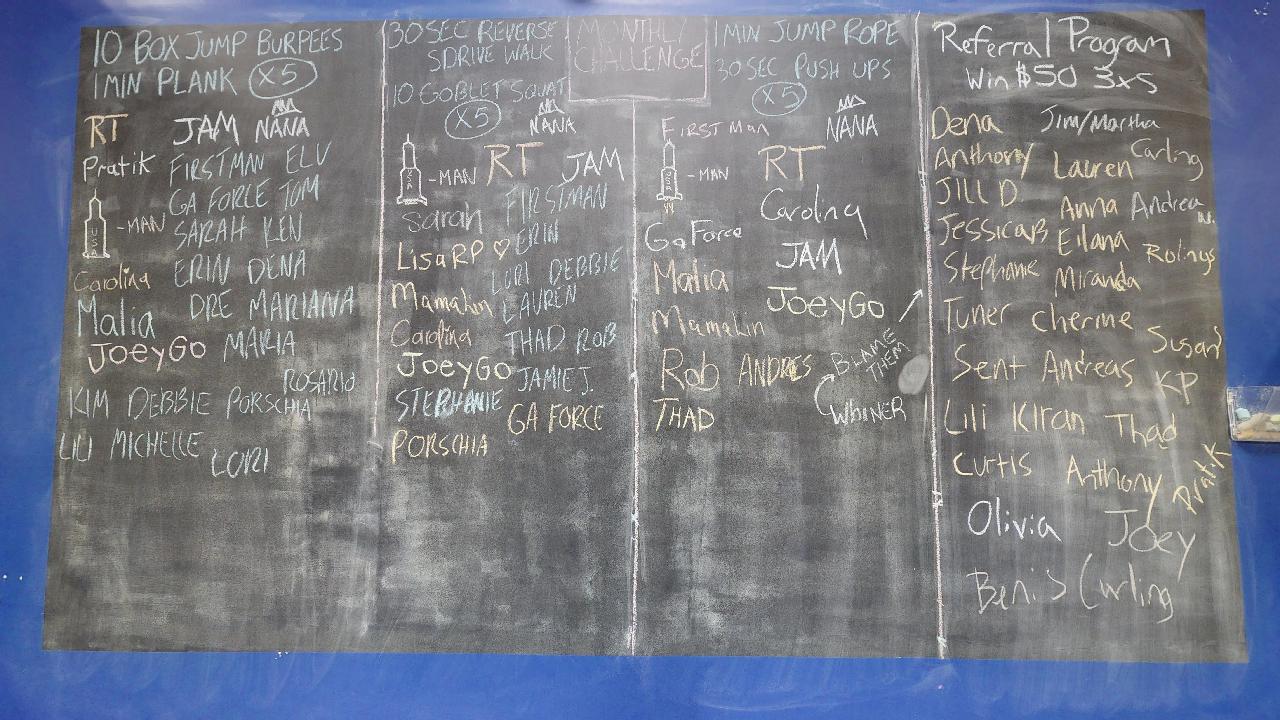 10 BOX JUMP BURPEES
1 MIN PLANK X5
RT JAM NANA
Pratik FIRSTMAN ELV
USA -MAN GA FORCE TOM
SARAH KEN
Carolina ERIN DENA
Malia DRE MARIANA
JoeyGo MARIA
ROSARIO
KIM DEBBIE PORSCHIA
LILI MICHELLE LORI
30 SEC REVERSE
SDRIVE WALK
10 GOBLET SQUAT
X5 NANA
USA -MAN RT JAM
Sarah FIRSTMAN
LisaRP ♡ ERIN
LORI DEBBIE
Mamalin LAUREN
Carolina THAD ROB
JoeyGo JAMIE J.
STEPHANIE GA FORCE
PORSCHIA
MONTHLY
CHALLENGE
1 MIN JUMP ROPE
30 SEC PUSH UPS
X5
FIRST Man NANA
USA -MAN RT
Carolina
Ga Force JAM
Malia JoeyGo
Mamalin
Rob ANDRES
THAD
BLAME
THEM
WHINER
Referral Program
Win $50 3x5
Dena Jim/Martha
Anthony Lauren Carling
JILL D. Anna Andrea N.
JessicaB Eilana Rolings
Stephanie Miranda
Tuner Cherine Susan
Sent Andreas KP
Lili Kiran Thad
Curtis Anthony Pratik
Olivia Joey
Beni's Curling